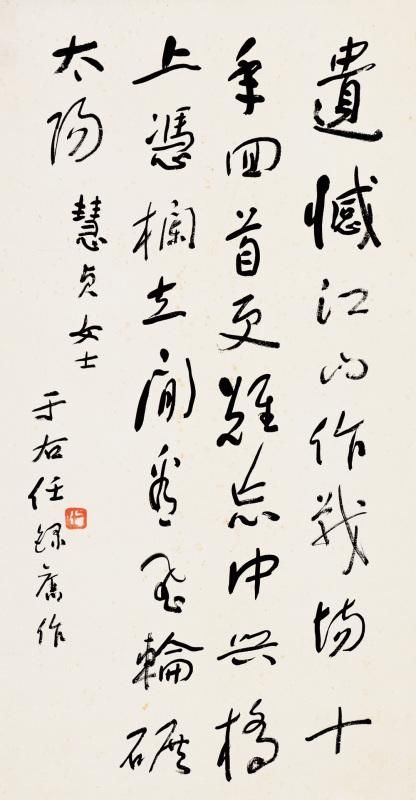 遺憾江山作戰場十
年回首更難忘中興橋
上憑欄立閒看飛輪碾
太陽 慧貞女士
于右任錄舊作